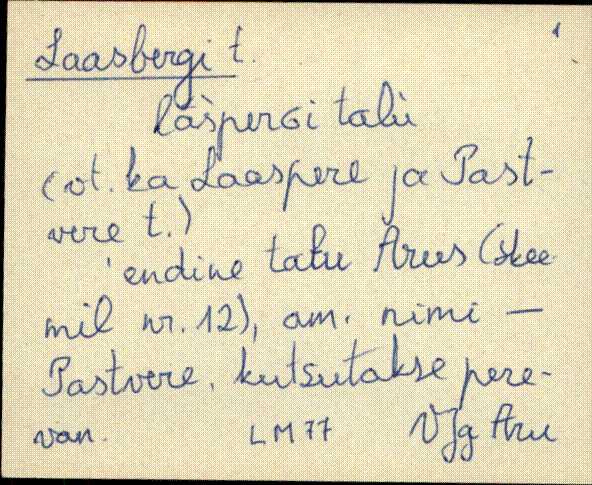 1
Laasbergi t.
lāsperGi talù
(vt. ka Laaspere ja Past-
vere t.)
'endine talu Arus (skee-
mil nr. 12), am. nimi —
Pastvere, kutsutakse pere-
van.
LM 77 VJg Aru